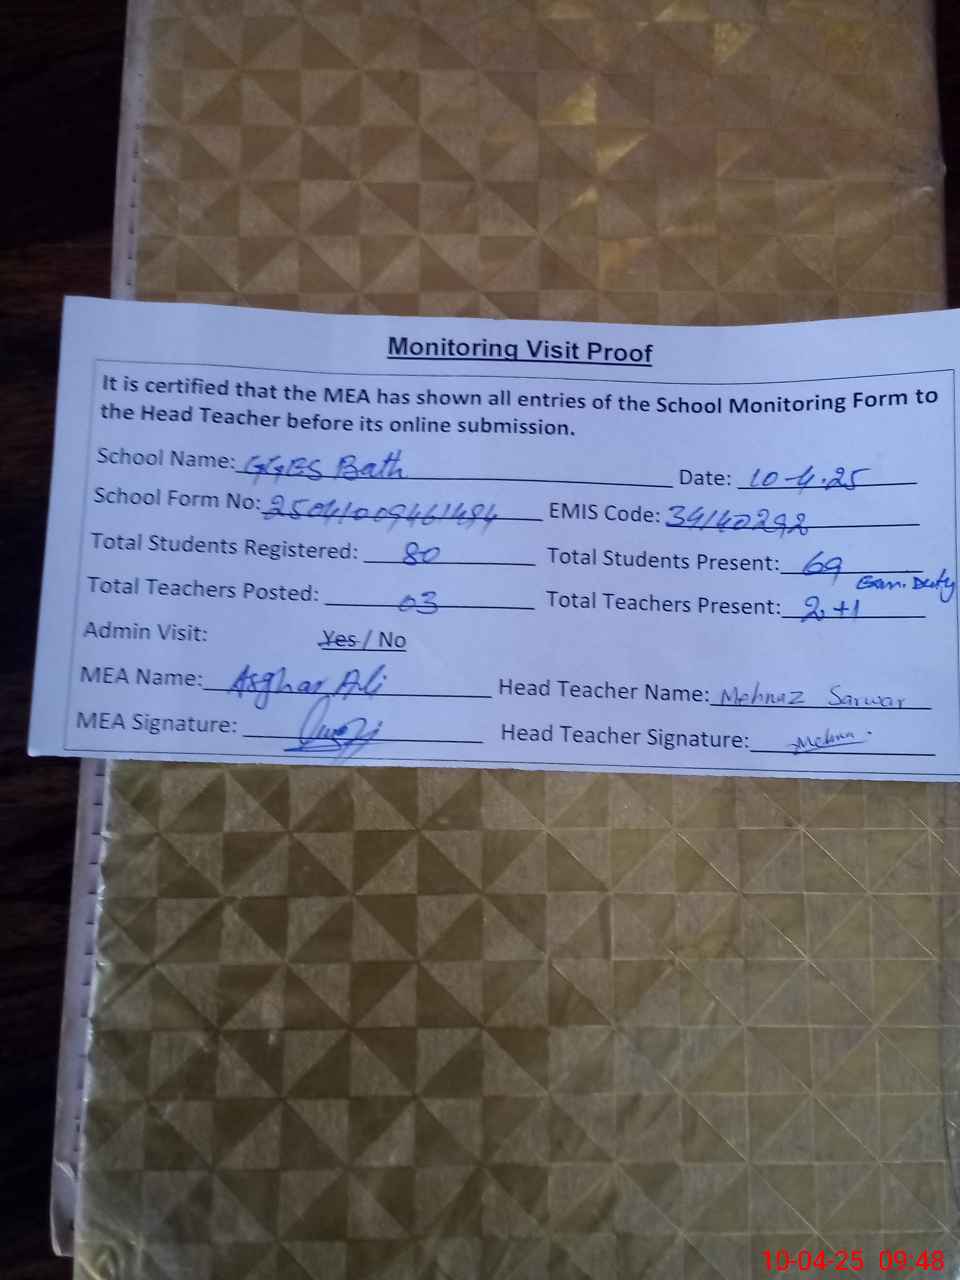 Monitoring Visit Proof
It is certified that the MEA has shown all entries of the School Monitoring Form to
the Head Teacher before its online submission.
School Name: GGES Bath Date: 10-4-25
School Form No: 25041009461494 EMIS Code: 34140292
Total Students Registered: 80 Total Students Present: 69
Total Teachers Posted: 03 Total Teachers Present: 2+1 Exm. Duty
Admin Visit: Yes / No
MEA Name: Asghar Ali Head Teacher Name: Mehnaz Sarwar
MEA Signature: Head Teacher Signature: Mehna
10-04-25 09:48